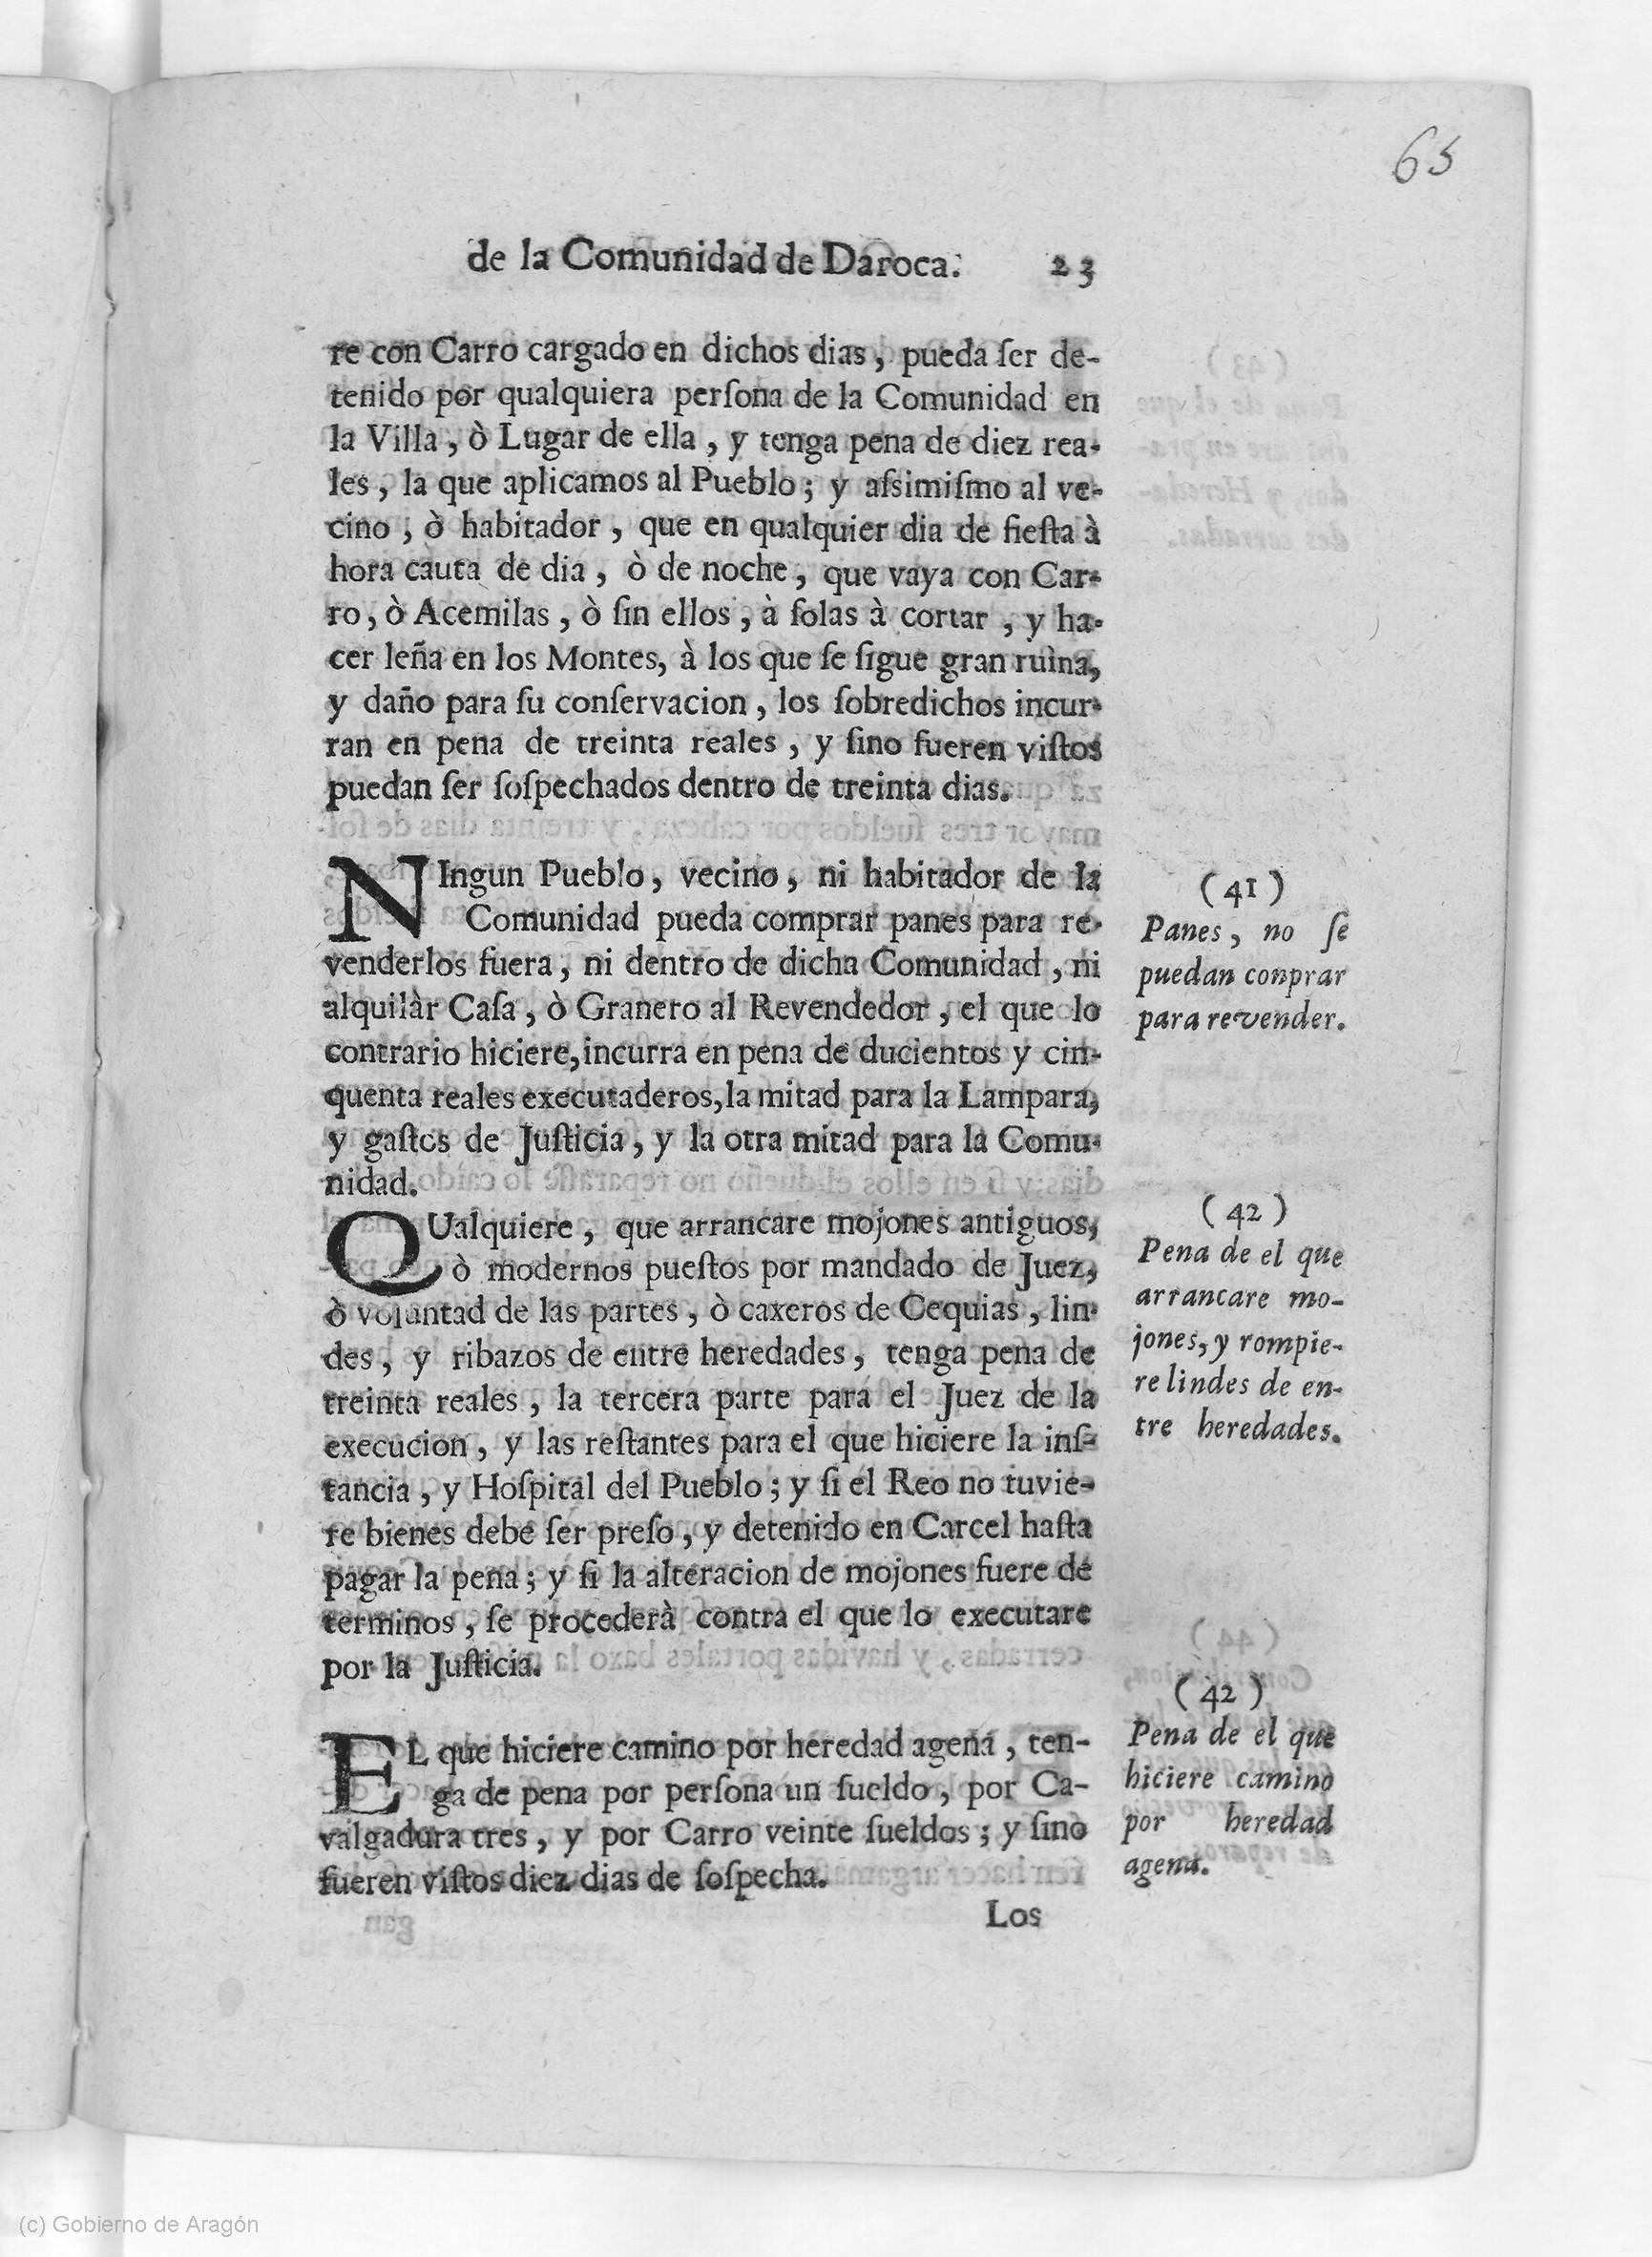 65
de la Comunidad de Daroca. 23
re con Carro cargado en dichos dias, pueda ſer de-
tenido por qualquiera perſona de la Comunidad en
la Villa, ò Lugar de ella, y tenga pena de diez rea-
les, la que aplicamos al Pueblo; y aſsimiſmo al ve-
cino, ò habitador, que en qualquier dia de fieſta à
hora cauta de dia, ò de noche, que vaya con Car-
ro, ò Acemilas, ò ſin ellos, à ſolas à cortar, y ha-
cer leña en los Montes, à los que ſe ſigue gran ruìna,
y daño para ſu conſervacion, los ſobredichos incur-
ran en pena de treinta reales, y ſino fueren viſtos
puedan ſer ſoſpechados dentro de treinta dias.
NIngun Pueblo, vecino, ni habitador de la
Comunidad pueda comprar panes para re-
venderlos fuera, ni dentro de dicha Comunidad, ni
alquilàr Caſa, ò Granero al Revendedor, el que lo
contrario hiciere, incurra en pena de ducientos y cin-
quenta reales executaderos, la mitad para la Lampara,
y gaſtos de Juſticia, y la otra mitad para la Comu-
nidad.
(41)
Panes, no ſe
puedan conprar
para revender.
QUalquiere, que arrancare mojones antiguos,
ò modernos pueſtos por mandado de Juez,
ò voluntad de las partes, ò caxeros de Cequias, lin-
des, y ribazos de entre heredades, tenga pena de
treinta reales, la tercera parte para el Juez de la
execucion, y las reſtantes para el que hiciere la inſ-
tancia, y Hoſpital del Pueblo; y ſi el Reo no tuvie-
re bienes debe ſer preſo, y detenido en Carcel haſta
pagar la pena; y ſi la alteracion de mojones fuere de
terminos, ſe procederà contra el que lo executare
por la Juſticia.
(42)
Pena de el que
arrancare mo-
jones, y rompie-
re lindes de en-
tre heredades.
EL que hiciere camino por heredad agena, ten-
ga de pena por perſona un ſueldo, por Ca-
valgadura tres, y por Carro veinte ſueldos; y ſino
fueren viſtos diez dias de ſoſpecha.
(42)
Pena de el que
hiciere camino
por heredad
agena.
Los
(c) Gobierno de Aragón